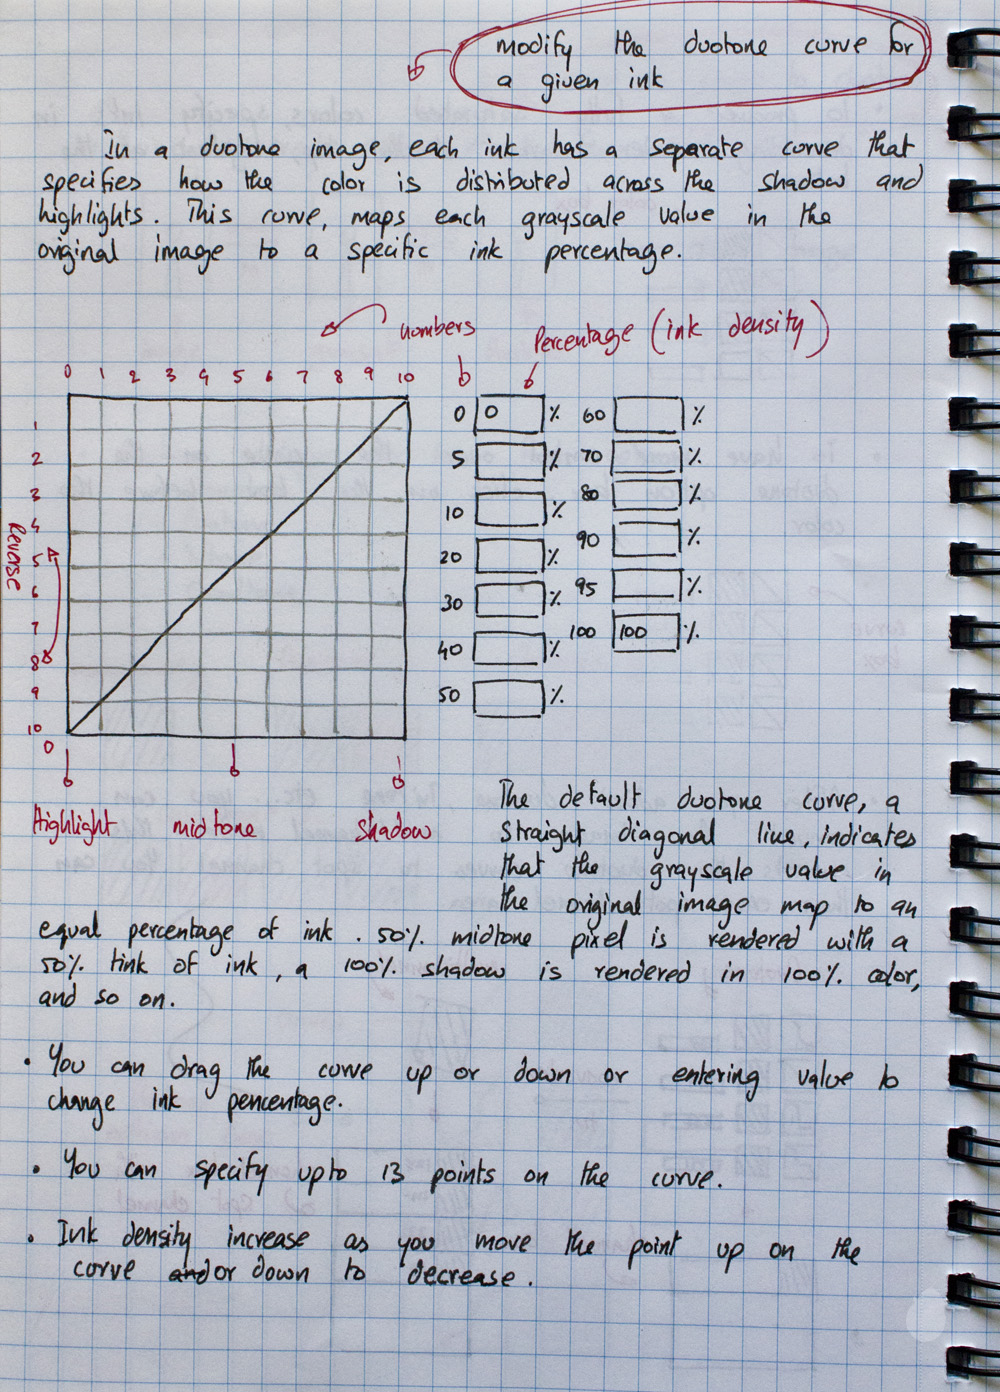 modify the duotone curve for
a given ink
In a duotone image, each ink has a separate curve that
specifies how the color is distributed across the shadow and
highlights. This curve, maps each grayscale value in the
original image to a specific ink percentage.
numbers
Percentage (ink density)
0 1 2 3 4 5 6 7 8 9 10
1
2
3
4
5
6
7
8
9
10
0
Reverse
Highlight midtone shadow
0 0 % 60 %
5 % 70 %
10 % 80 %
20 % 90 %
30 % 95 %
40 % 100 100 %
50 %
The default duotone curve, a
straight diagonal line, indicates
that the grayscale value in
the original image map to an
equal percentage of ink. 50% midtone pixel is rendered with a
50% tink of ink, a 100% shadow is rendered in 100% color,
and so on.
• You can drag the curve up or down or entering value to
change ink percentage.
• You can specify upto 13 points on the curve.
• Ink density increase as you move the point up on the
curve and or down to decrease.